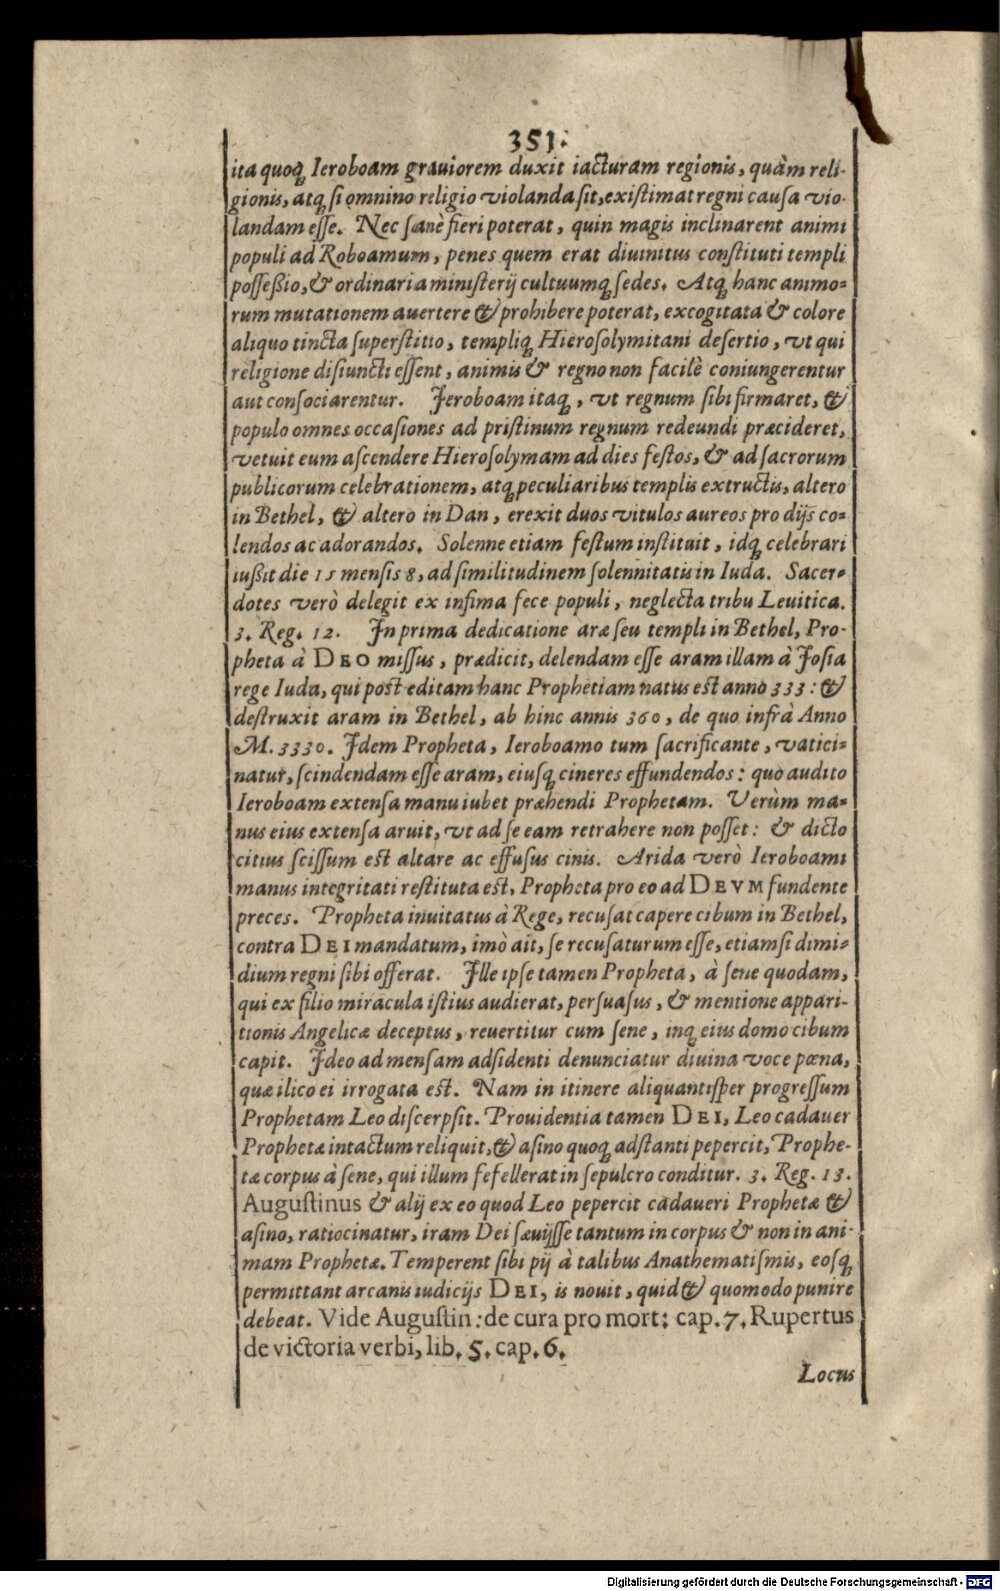 351.
ita quoq́ Ieroboam grauiorem duxit iacturam regionis, quàm reli-
gionis, atq́ si omnino religio violanda sit, existimat regni causa vio-
landam esse. Nec sanè fieri poterat, quin magis inclinarent animi
populi ad Roboamum, penes quem erat diuinitus constituti templi
posseßio, & ordinaria ministerij cultuumq́ sedes. Atq́ hanc animo-
rum mutationem auertere & prohibere poterat, excogitata & colore
aliquo tincta superstitio, templiq́ Hierosolymitani desertio, vt qui
religione disiuncti essent, animis & regno non facilè coniungerentur
aut consociarentur. Ieroboam itaq́, vt regnum sibi firmaret, &
populo omnes occasiones ad pristinum regnum redeundi præcideret,
vetuit eum ascendere Hierosolymam ad dies festos, & ad sacrorum
publicorum celebrationem, atq́ peculiaribus templis extructis, altero
in Bethel, & altero in Dan, erexit duos vitulos aureos pro dijs co-
lendos ac adorandos. Solenne etiam festum instituit, idq́ celebrari
iußit die 15 mensis 8, ad similitudinem solennitatis in Iuda. Sacer-
dotes verò delegit ex infima fece populi, neglecta tribu Leuitica.
3. Reg. 12. In prima dedicatione aræ seu templi in Bethel, Pro-
pheta à DEO missus, prædicit, delendam esse aram illam à Josia
rege Iuda, qui post editam hanc Prophetiam natus est anno 333: &
destruxit aram in Bethel, ab hinc annis 360, de quo infrà Anno
M. 3330. Idem Propheta, Ieroboamo tum sacrificante, vatici-
natur, scindendam esse aram, eiusq́ cineres effundendos: quo audito
Ieroboam extensa manu iubet præhendi Prophetam. Verùm ma-
nus eius extensa aruit, vt ad se eam retrahere non posset: & dicto
citius scissum est altare ac effusus cinis. Arida verò Ieroboami
manus integritati restituta est, Propheta pro eo ad DEVM fundente
preces. Propheta inuitatus à Rege, recusat capere cibum in Bethel,
contra DEI mandatum, imò ait, se recusaturum esse, etiamsi dimi-
dium regni sibi offerat. Ille ipse tamen Propheta, à sene quodam,
qui ex filio miracula istius audierat, persuasus, & mentione appari-
tionis Angelicæ deceptus, reuertitur cum sene, inq́ eius domo cibum
capit. Ideo ad mensam adsidenti denunciatur diuina voce pœna,
quæ ilico ei irrogata est. Nam in itinere aliquantisper progressum
Prophetam Leo discerpsit. Prouidentia tamen DEI, Leo cadauer
Prophetæ intactum reliquit, & asino quoq́ adstanti pepercit, Prophe-
tæ corpus à sene, qui illum fefellerat in sepulcro conditur. 3. Reg. 13.
Augustinus & alij ex eo quod Leo pepercit cadaueri Prophetæ &
asino, ratiocinatur, iram Dei sæuijsse tantum in corpus & non in ani-
mam Prophetæ. Temperent sibi pij à talibus Anathematismis, eosq́
permittant arcanis iudicijs DEI, is nouit, quid & quomodo punire
debeat. Vide Augustin: de cura pro mort: cap. 7. Rupertus
de victoria verbi, lib. 5. cap. 6.
Locus
Digitalisierung gefördert durch die Deutsche Forschungsgemeinschaft - DFG